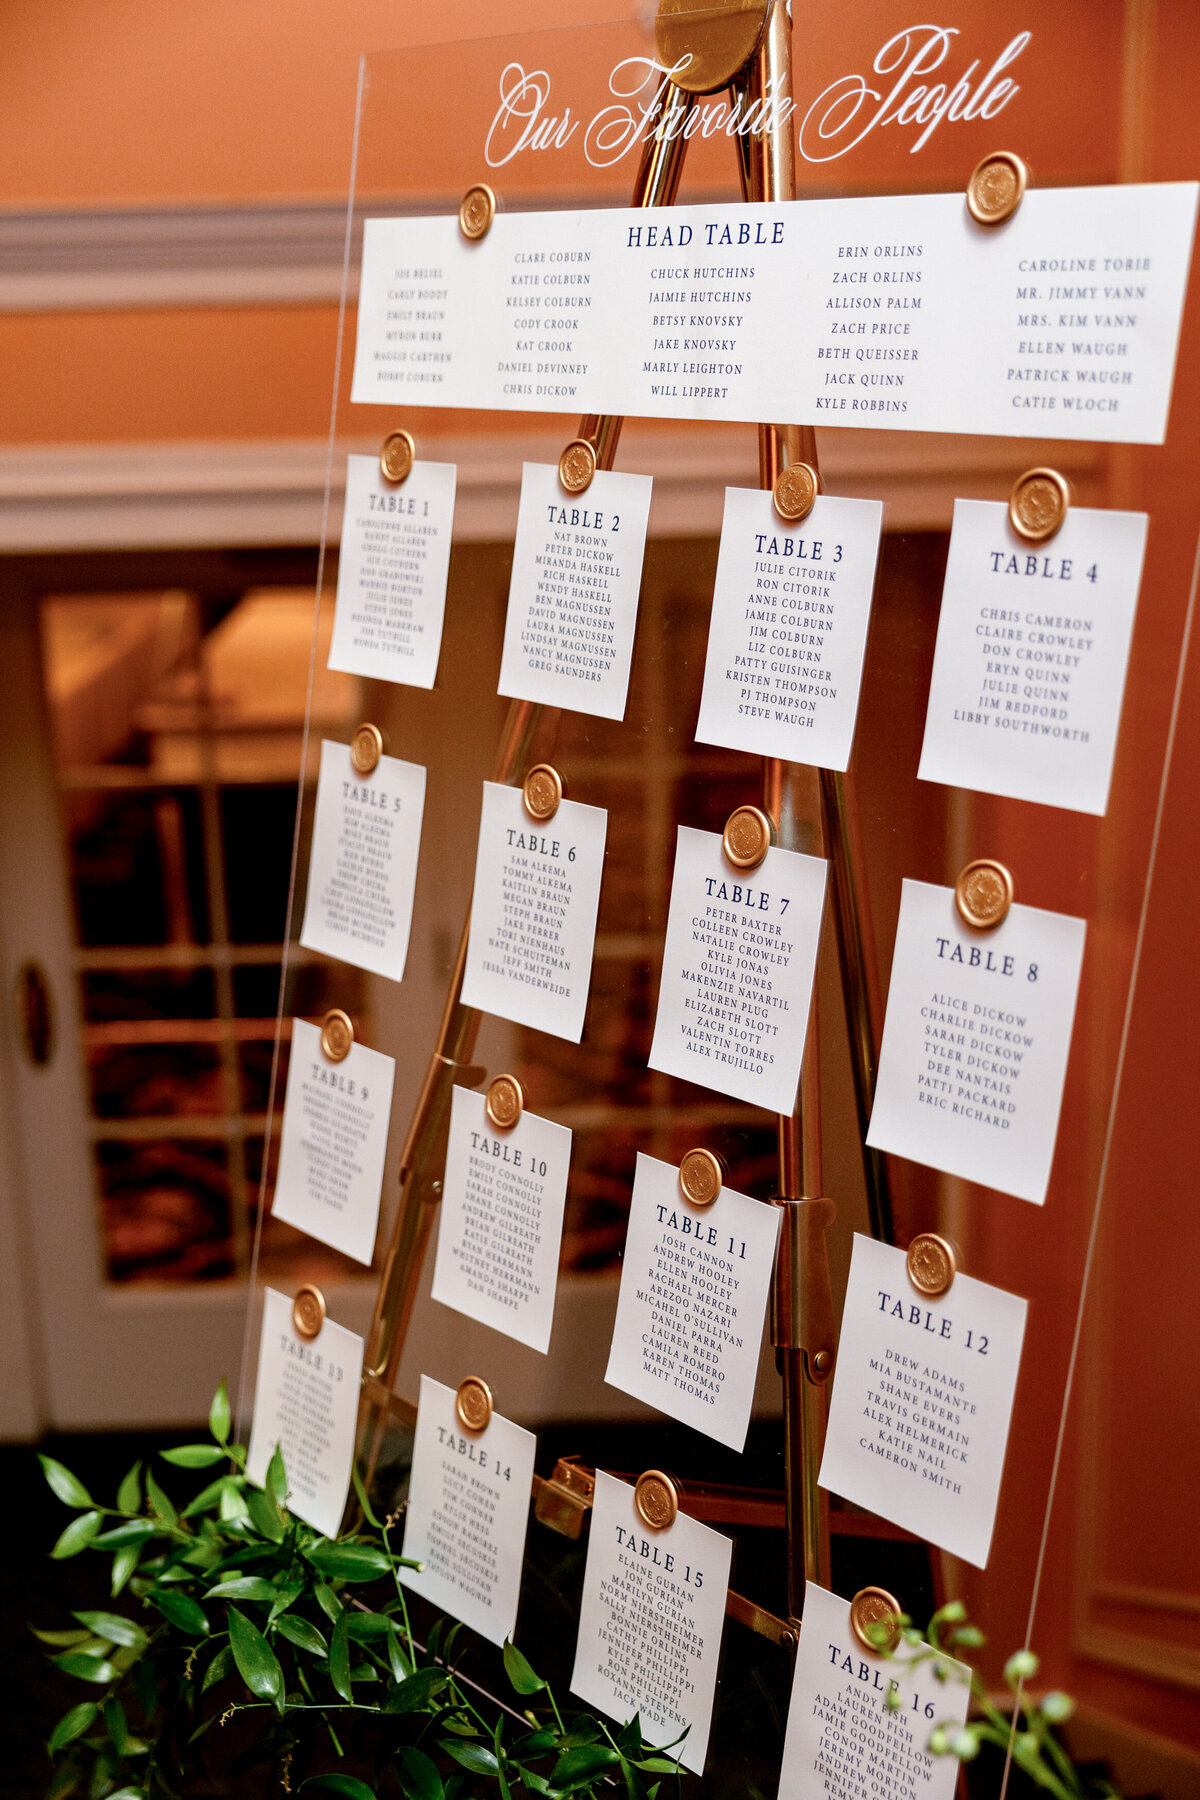 Our Favorite People
HEAD TABLE
JOE BELIEL
CARLY BODDY
EMILY BRAUN
MYRON BURR
MAGGIE CARTHEN
BOBBY COBURN
CLARE COBURN
KATIE COLBURN
KELSEY COLBURN
CODY CROOK
KAT CROOK
DANIEL DEVINNEY
CHRIS DICKOW
CHUCK HUTCHINS
JAIMIE HUTCHINS
BETSY KNOVSKY
JAKE KNOVSKY
MARLY LEIGHTON
WILL LIPPERT
ERIN ORLINS
ZACH ORLINS
ALLISON PALM
ZACH PRICE
BETH QUEISSER
JACK QUINN
KYLE ROBBINS
CAROLINE TORIE
MR. JIMMY VANN
MRS. KIM VANN
ELLEN WAUGH
PATRICK WAUGH
CATIE WLOCH
TABLE 1
CAROLYNNE ALLABEN
RANDY ALLABEN
GREGG COTHERN
SUE COTHERN
DAN GRABOWSKI
MARNIE HORTON
JULIE JONES
STEVE JONES
RHONDA MARKHAM
JON TUTHILL
RONDA TUTHILL
TABLE 2
NAT BROWN
PETER DICKOW
MIRANDA HASKELL
RICH HASKELL
WENDY HASKELL
BEN MAGNUSSEN
DAVID MAGNUSSEN
LAURA MAGNUSSEN
LINDSAY MAGNUSSEN
NANCY MAGNUSSEN
GREG SAUNDERS
TABLE 3
JULIE CITORIK
RON CITORIK
ANNE COLBURN
JAMIE COLBURN
JIM COLBURN
LIZ COLBURN
PATTY GUISINGER
KRISTEN THOMPSON
PJ THOMPSON
STEVE WAUGH
TABLE 4
CHRIS CAMERON
CLAIRE CROWLEY
DON CROWLEY
ERYN QUINN
JULIE QUINN
JIM REDFORD
LIBBY SOUTHWORTH
TABLE 5
DAVE ALKEMA
KIM ALKEMA
MIKE BRAUN
STACEY BRAUN
TABLE 6
SAM ALKEMA
TOMMY ALKEMA
KAITLIN BRAUN
MEGAN BRAUN
STEPH BRAUN
JAKE FERRER
TORI NIENHAUS
NATE SCHUITEMAN
JEFF SMITH
JESSA VANDERWEIDE
TABLE 7
PETER BAXTER
COLLEEN CROWLEY
NATALIE CROWLEY
KYLE JONAS
OLIVIA JONES
MAKENZIE NAVARTIL
LAUREN PLUG
ELIZABETH SLOTT
ZACH SLOTT
VALENTIN TORRES
ALEX TRUJILLO
TABLE 8
ALICE DICKOW
CHARLIE DICKOW
SARAH DICKOW
TYLER DICKOW
DEE NANTAIS
PATTI PACKARD
ERIC RICHARD
TABLE 9
MICHAEL CONNOLLY
TABLE 10
BRODY CONNOLLY
EMILY CONNOLLY
SARAH CONNOLLY
SHANE CONNOLLY
ANDREW GILREATH
BRIAN GILREATH
KATIE GILREATH
RYAN HERRMANN
WHITNEY HERRMANN
AMANDA SHARPE
DAN SHARPE
TABLE 11
JOSH CANNON
ANDREW HOOLEY
ELLEN HOOLEY
RACHAEL MERCER
AREZOO NAZARI
MICAHEL O'SULLIVAN
DANIEL PARRA
LAUREN REED
CAMILA ROMERO
KAREN THOMAS
MATT THOMAS
TABLE 12
DREW ADAMS
MIA BUSTAMANTE
SHANE EVERS
TRAVIS GERMAIN
ALEX HELMERICK
KATIE NAIL
CAMERON SMITH
TABLE 13
TABLE 14
SARAH BROWN
LUCY COHEN
TIM CONNER
KYLIE HESS
EDSON RAMIREZ
EMILY SECUSKIE
TUNNEL SECUSKIE
KARL SULLIVAN
TAYLOR WAGNER
TABLE 15
ELAINE GURIAN
JON GURIAN
MARILYN GURIAN
NORM NIERSTHEIMER
SALLY NIERSTHEIMER
BONNIE ORLINS
CATHY PHILLIPPI
JENNIFER PHILLIPPI
KYLE PHILLIPPI
RON PHILLIPPI
ROXANNE STEVENS
JACK WADE
TABLE 16
ANDY FISH
LAUREN FISH
ADAM GOODFELLOW
JAMIE GOODFELLOW
CONOR MARTIN
JEREMY MORTIN
ANDREW ORLINS
JENNIFER
REMY